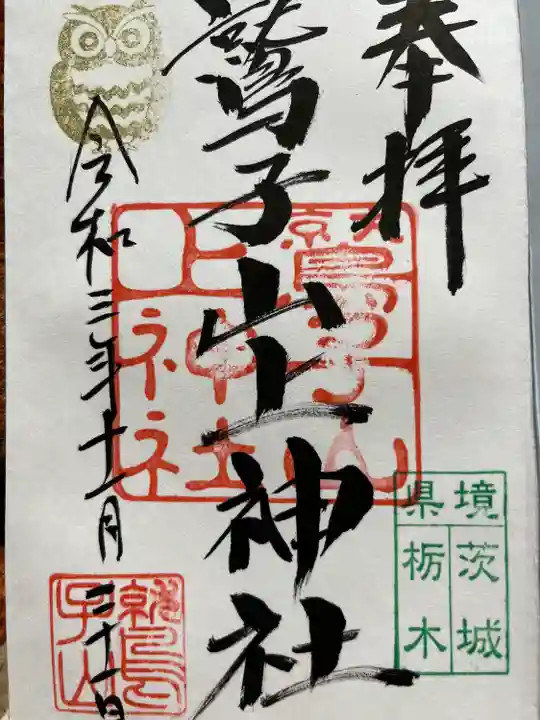 奉拝
鷲子山上神社
令和三年十一月二十一日
鷲子山
上神社
県境
茨城
栃木
鷲子山